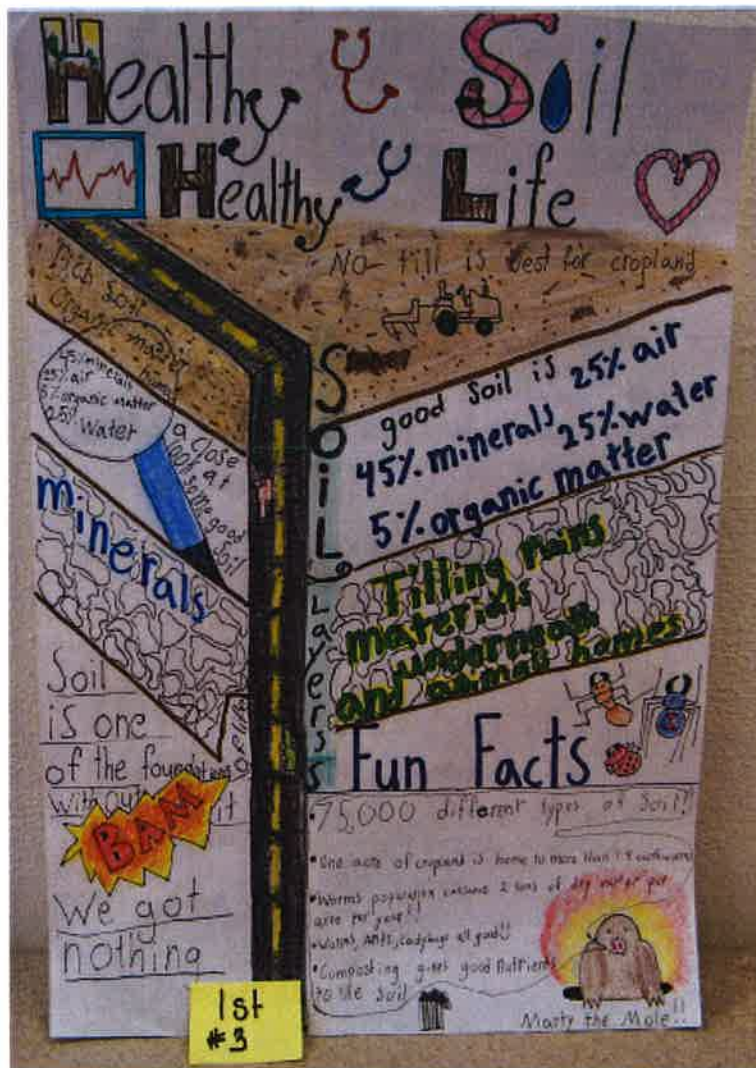 Healthy Soil
Healthy Life
No till is best for cropland
Rich Soil
Organic matter
homes
45% minerals
25% air
5% organic matter
25% Water
a close
look at
some good
Soil
SOiL Layers
good soil is 25% air
45% minerals 25% water
5% organic matter
minerals
Tilling ruins
materials
underneath
and animal homes
Soil
is one
of the foundations
without it
BAM
We got
nothing
Fun Facts
• 75,000 different types of Soil!!
• One acre of cropland is home to more than
• Worms population consume 2 tons of dry matter per
acre per year!!
• Worms, Ants, Ladybugs all good!!
• Composting gives good Nutrients
to the Soil
Marty the Mole!!
1st
#3